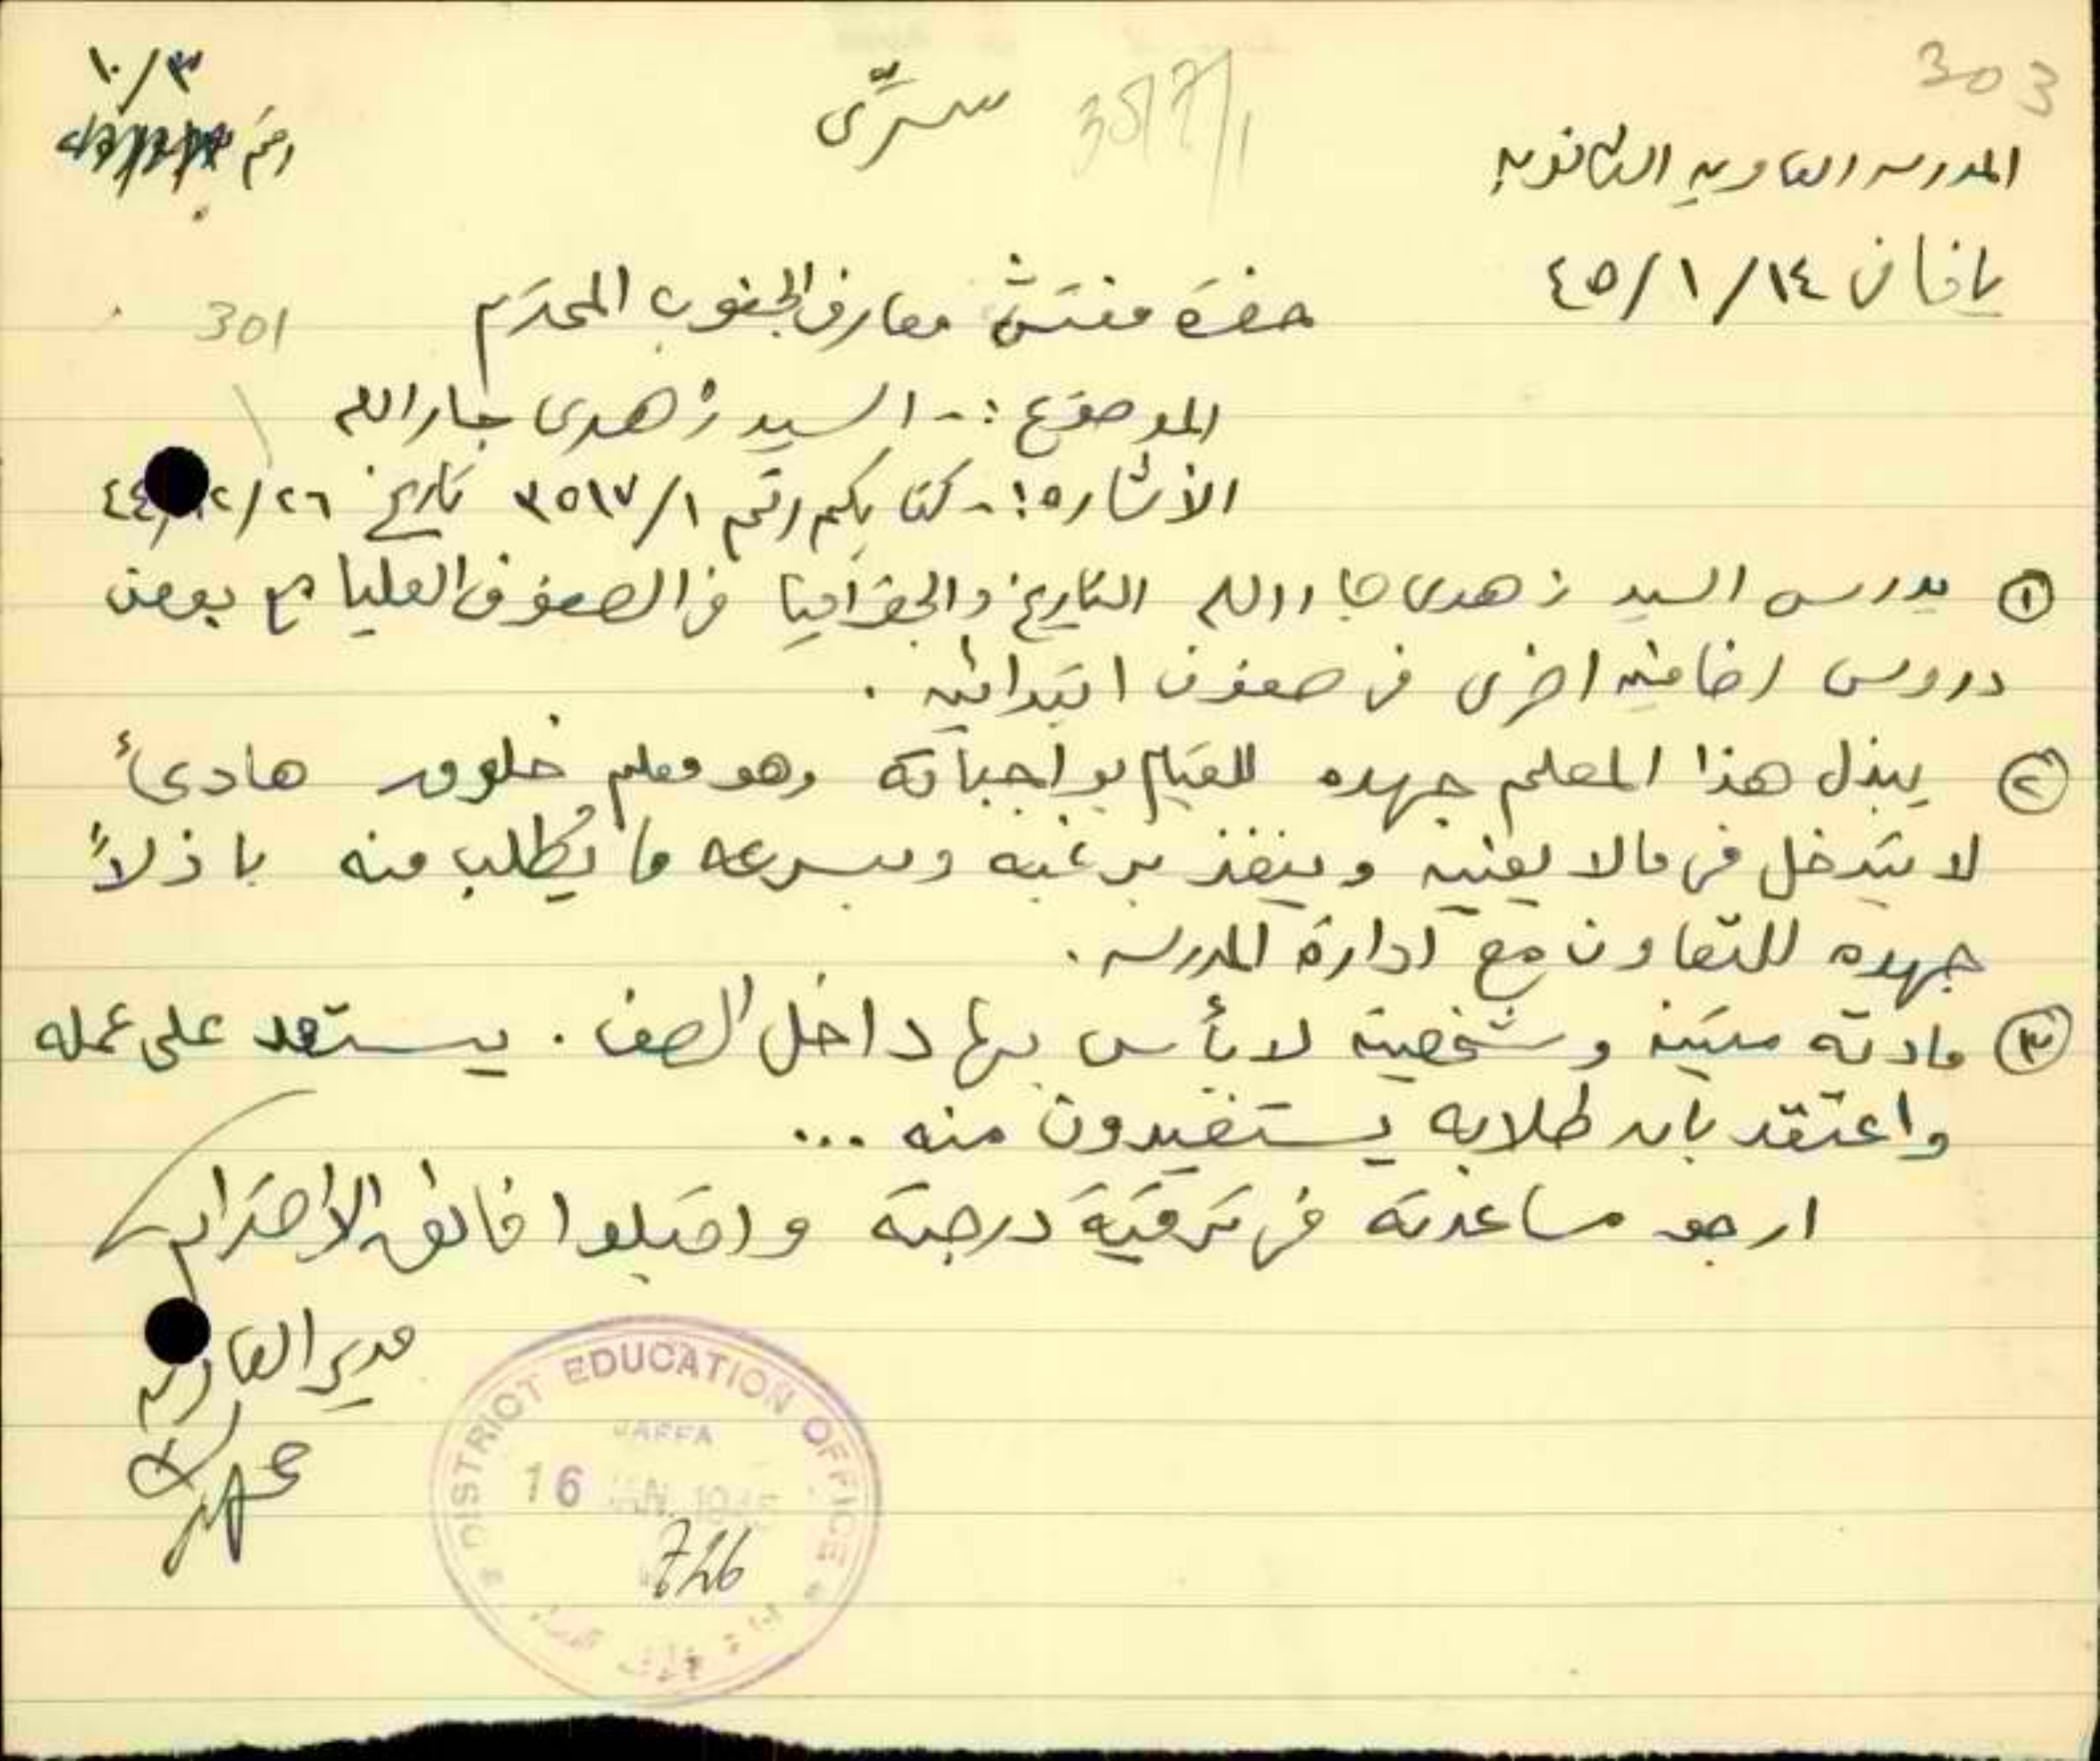 303
١٠/٣
سرّي
3517/1
رقم
المدرسه العامريه الثانويه
يافا في ١٤/١/٤٥
حضرة مفتش معارف الجنوب المحترم
301
الموضوع :- السيد زهدي جار الله
الاشاره :- كتابكم رقم ٣٥١٧/١ تاريخ ٢٦/١٢/٤٤
١ يدرس السيد زهدي جار الله التاريخ والجغرافيا في الصفوف العليا مع بعض
دروس اضافيه اخرى في صفوف ابتدائيه .
٢ يبذل هذا المعلم جهده للقيام بواجباته وهو معلم خلوق هادئ
لا يتدخل في مالا يعنيه وينفذ برغبه وبسرعه ما يُطلب منه باذلاً
جهده للتعاون مع ادارة المدرسه .
٣ مادته متينه وشخصيته لا بأس بها داخل الصف . يستعد على عمله
واعتقد بان طلابه يستفيدون منه ...
ارجو مساعدته في ترقية درجته واقبلوا فائق الاحترام
مدير العامريه
DISTRICT EDUCATION OFFICE
JAFFA
16 JAN 1945
726